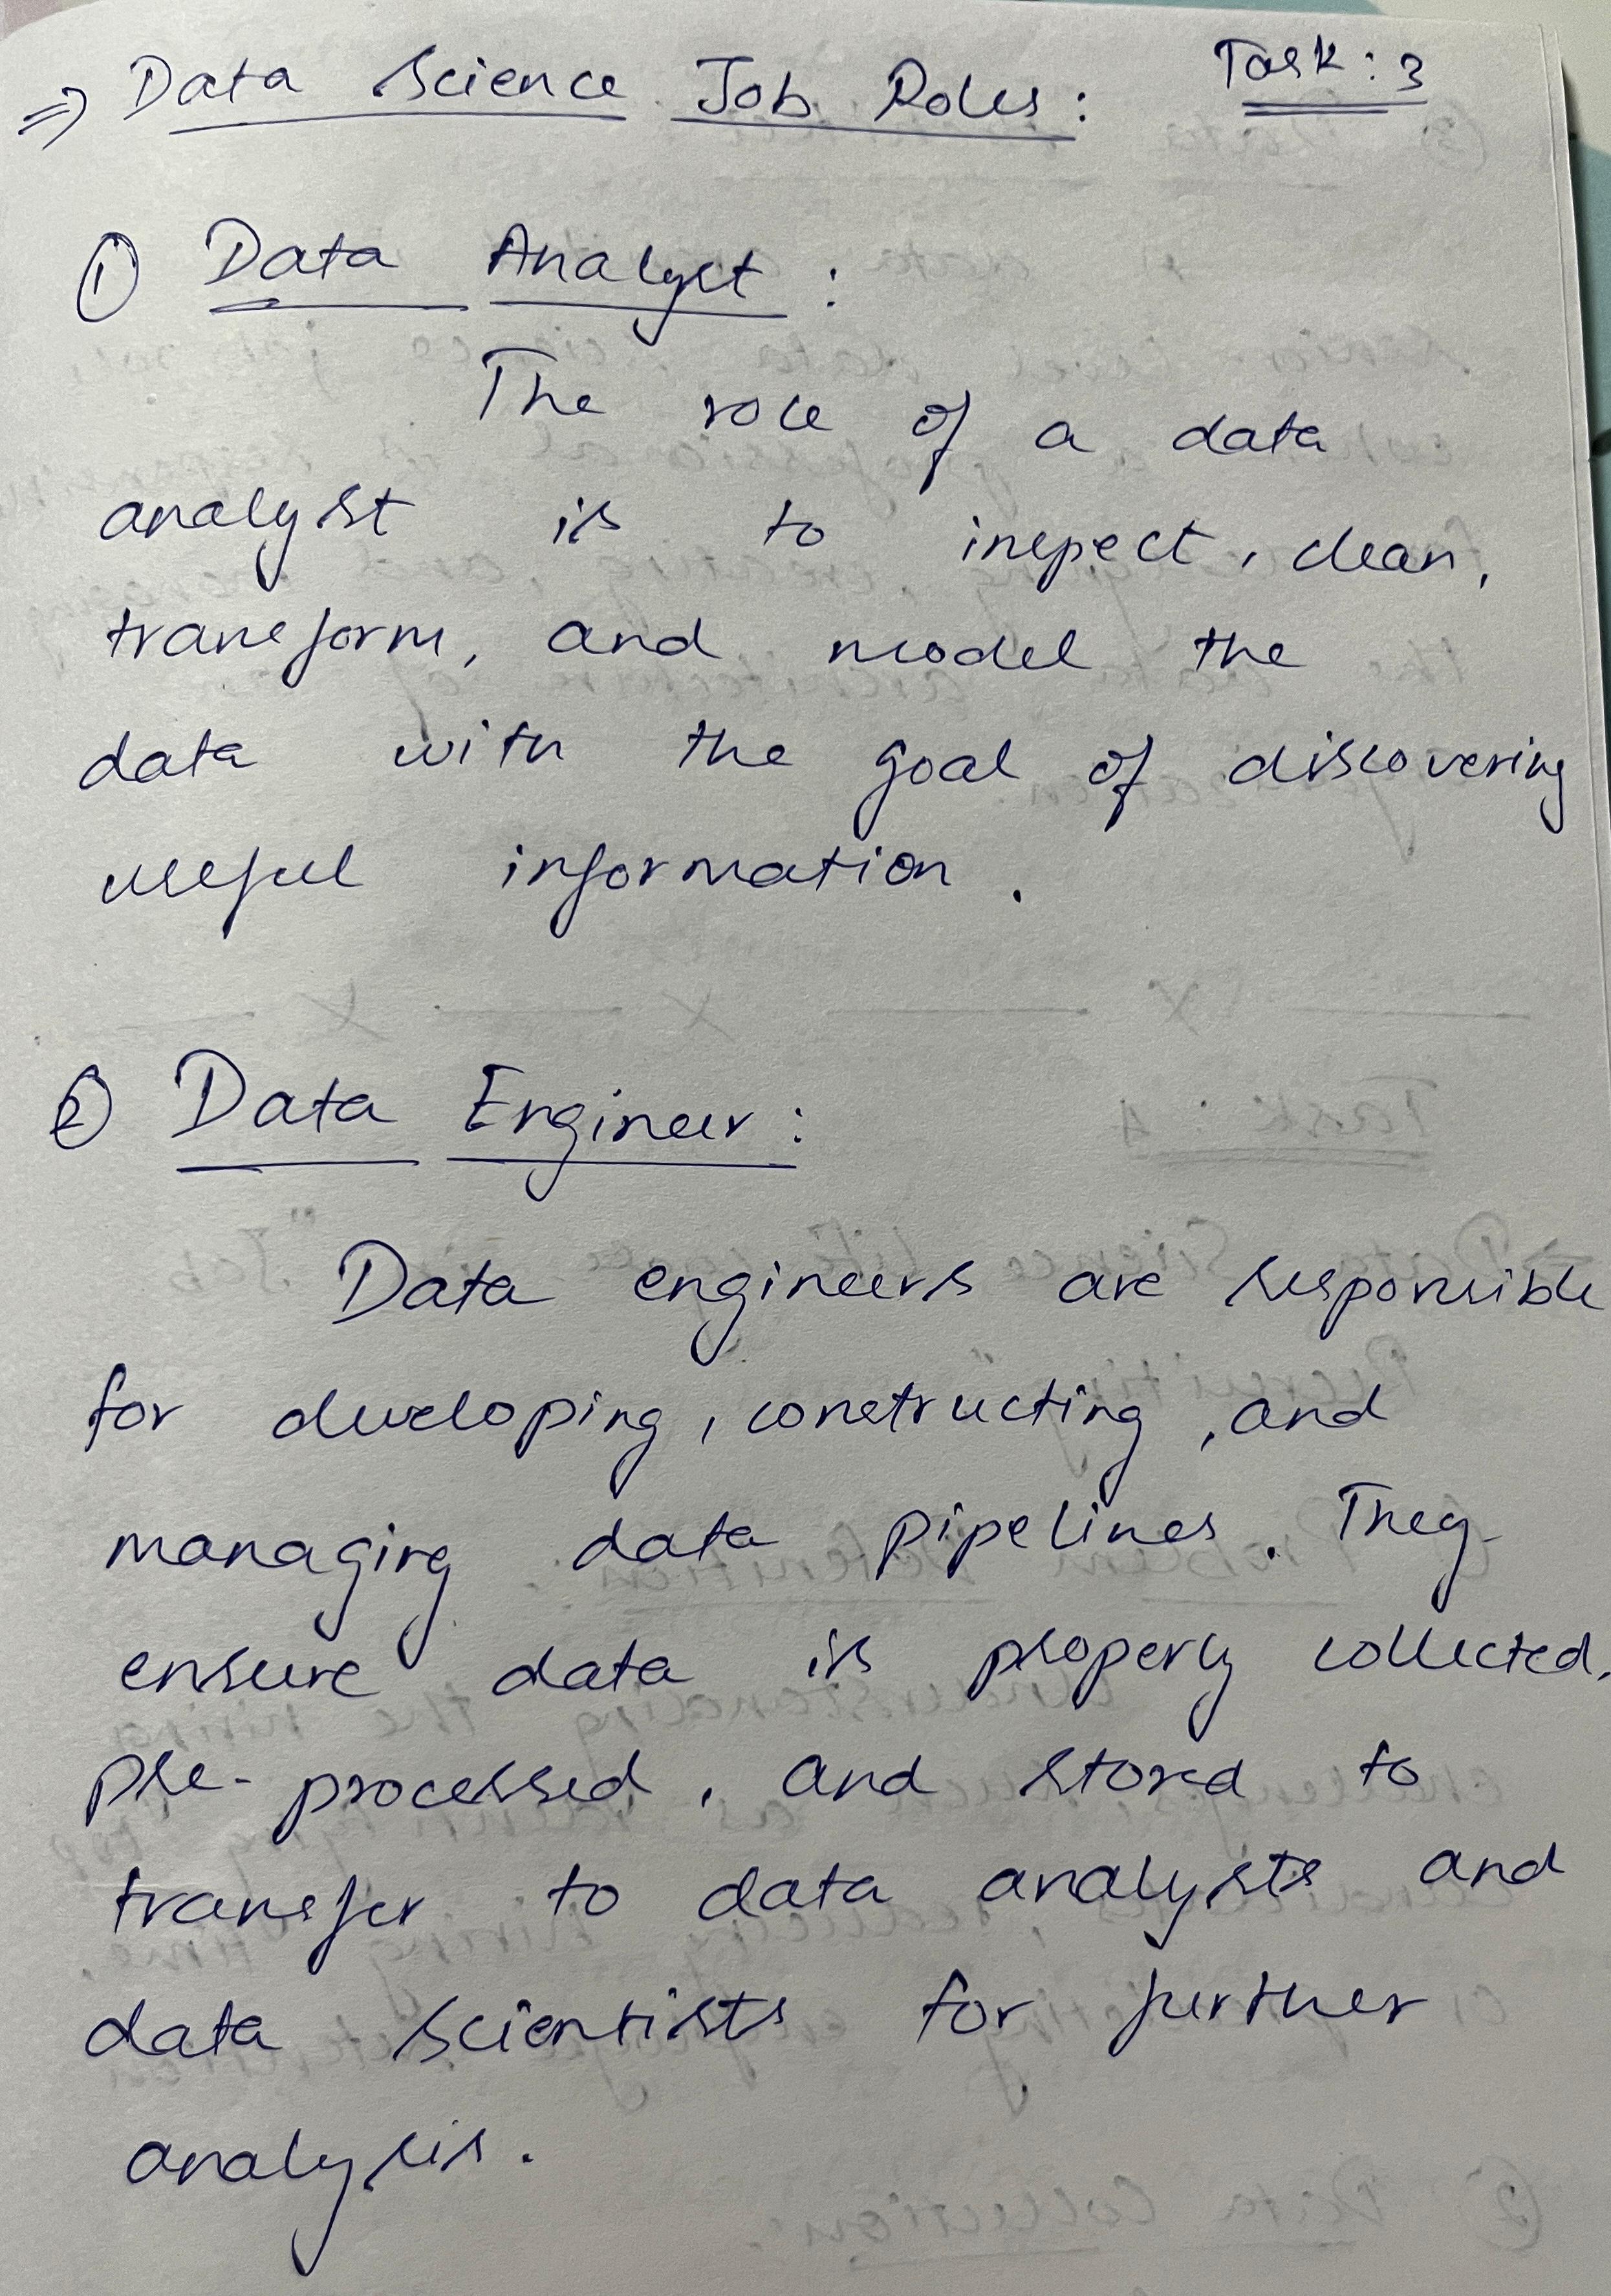 ⇒ Data Science Job Roles: Task: 3
① Data Analyst:
The role of a data
analyst is to inspect, clean,
transform, and model the
data with the goal of discovering
useful information.
② Data Engineer:
Data engineers are responsible
for developing, constructing, and
managing data pipelines. They
ensure data is properly collected,
pre-processed, and stored to
transfer to data analysts and
data scientists for further
analysis.